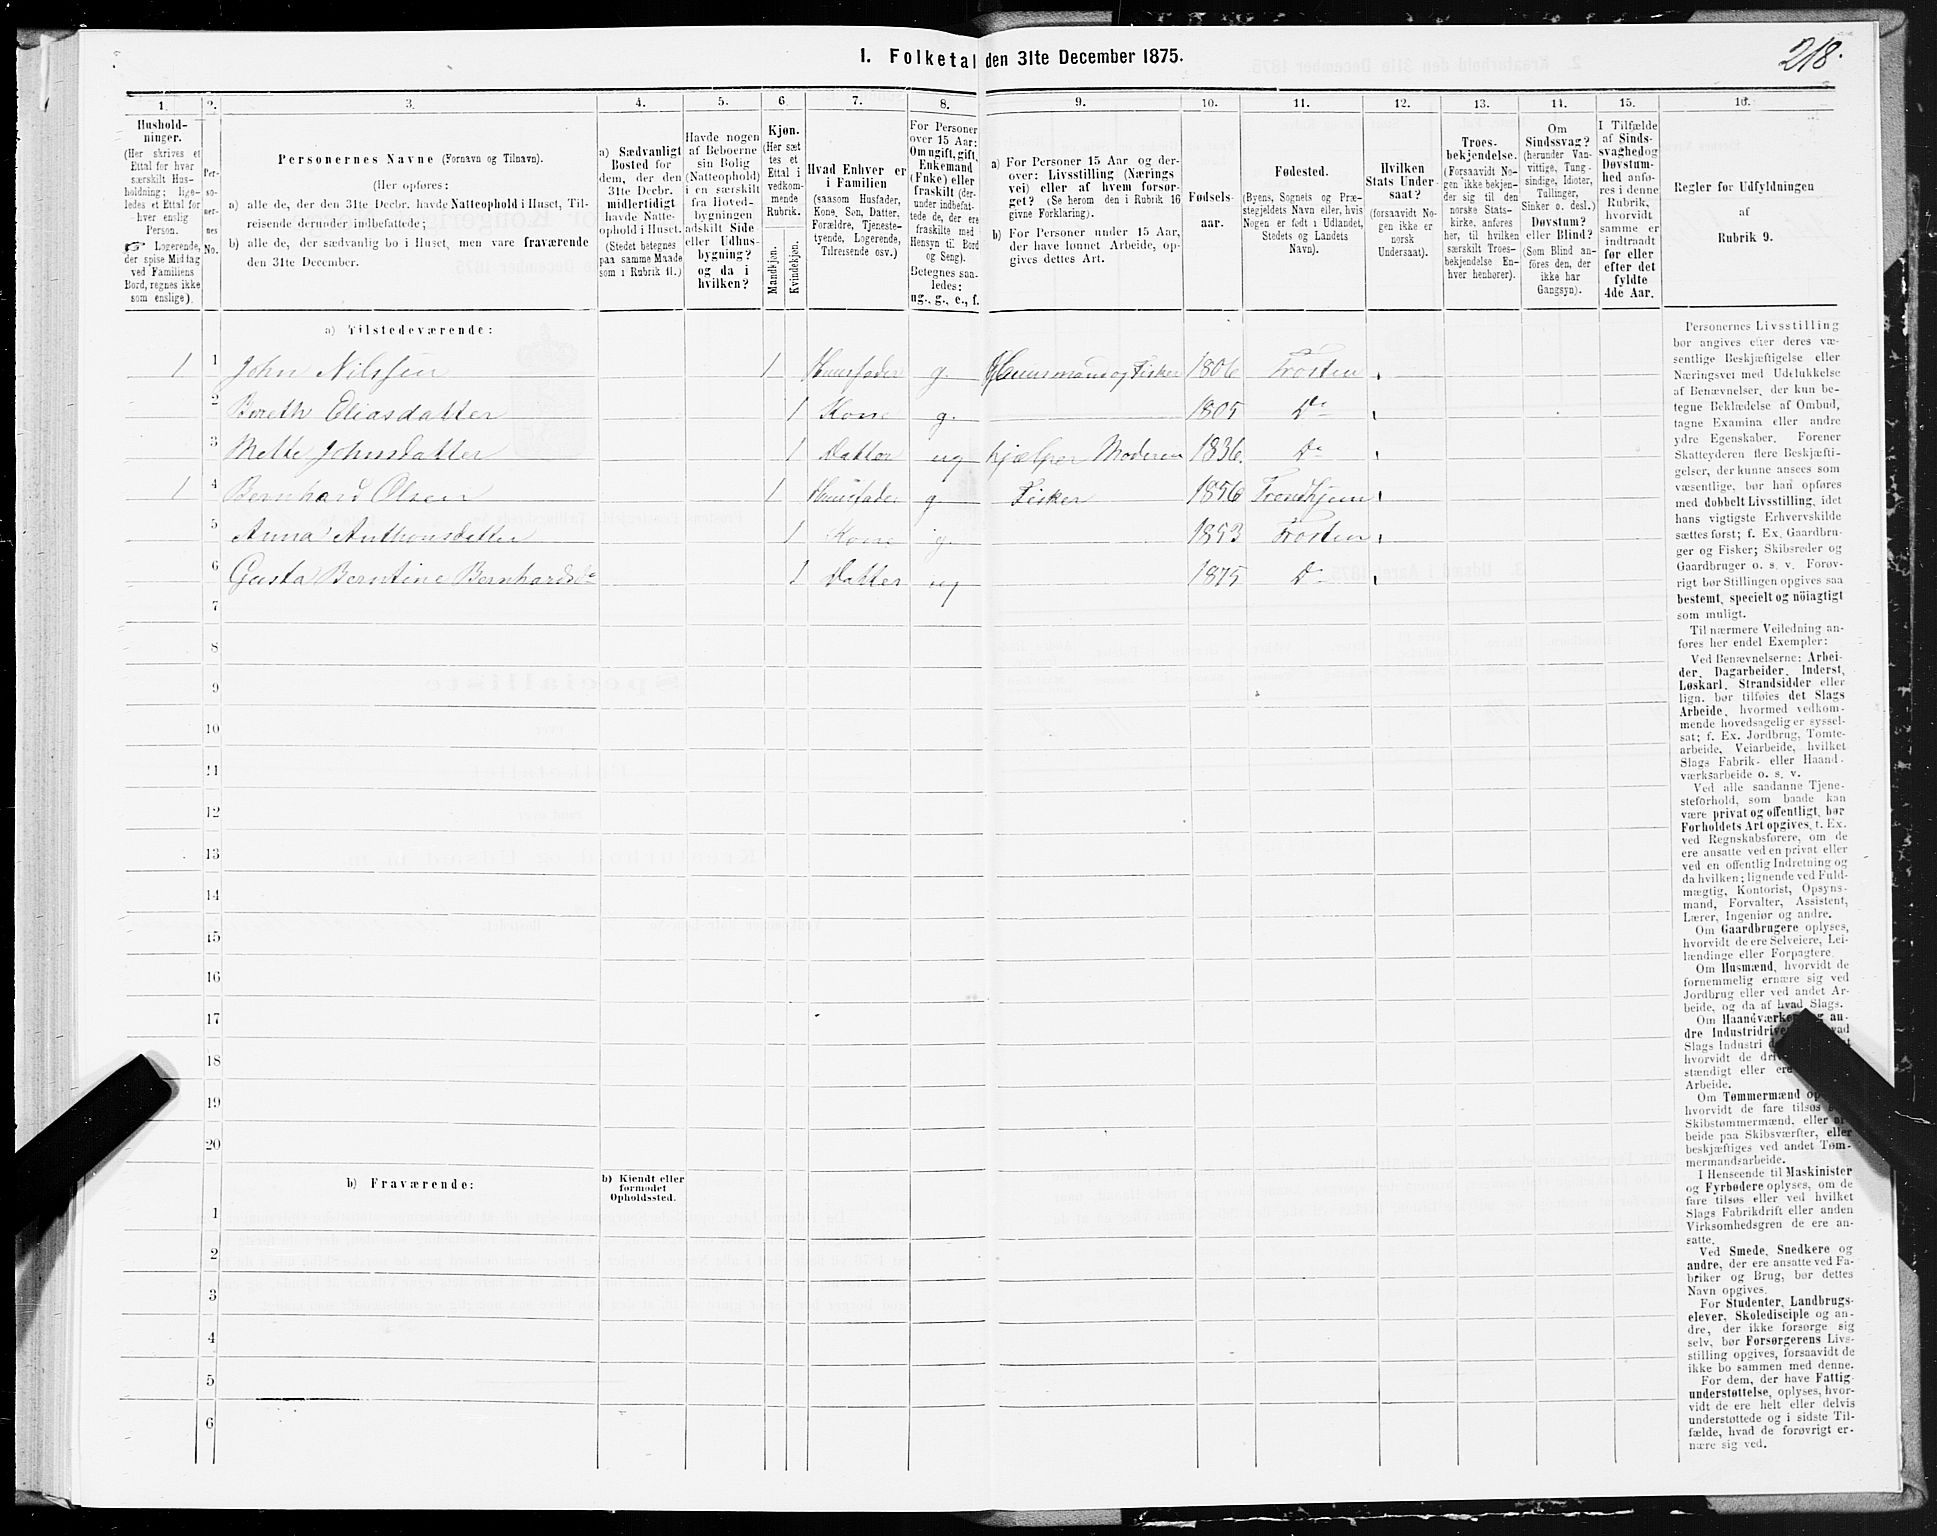 218.
1. Folketal den 31te December 1875.
1. 2. 3. 4. 5. 6. 7. 8. 9. 10. 11. 12. 13. 14. 15. 16.
Hushold-
ninger.
(Her skrives et
Ettal for hver
særskilt Hus-
holdning; lige-
ledes et Ettal for
hver enslig
Person.
☞ Logerende,
der spise Middag
ved Familiens
Bord, regnes ikke
som enslige).
Per-
so-
ner-
nes
No.
Personernes Navne (Fornavn og Tilnavn).
(Her opføres:
a) alle de, der den 31te Decbr. havde Natteophold i Huset, Til-
reisende derunder indbefattede;
b) alle de, der sædvanlig bo i Huset, men vare fraværende
den 31te December.
a) Sædvanligt
Bosted for
dem, der den
31te Decbr.
midlertidigt
havde Natte-
ophold i Huset.
(Stedet betegnes
paa samme Maade
som i Rubrik 11.)
Havde nogen
af Beboerne
sin Bolig
(Natteophold)
i en særskilt
fra Hoved-
bygningen
adskilt Side
eller Udhus-
bygning?
og da i
hvilken?
Kjøn.
(Her sæt
tes et
Ettal i
vedkom-
mende
Rubrik.
Mandkjøn.
Kvindekjøn.
Hvad Enhver er
i Familien
(saasom Husfader,
Kone, Søn, Datter,
Forældre, Tjeneste-
tyende, Logerende,
Tilreisende osv.)
For Personer
over 15 Aar:
Om ugift, gift,
Enkemand
(Enke) eller
fraskilt (der-
under indbefat-
tede de, der ere
fraskilte med
Hensyn til Bord
og Seng).
Betegnes saa-
ledes:
ug., g., e., f.
a) For Personer 15 Aar og der-
over: Livsstilling (Nærings
vei) eller af hvem forsør-
get? (Se herom den i Rubrik 16
givne Forklaring).
b) For Personer under 15 Aar,
der have lønnet Arbeide, op-
gives dettes Art.
Fødsels-
aar.
Fødested.
(Byens, Sognets og Præ-
stegjeldets Navn eller, hvis
Nogen er født i Udlandet,
Stedets og Landets
Navn).
Hvilken
Stats Under-
saat?
(forsaavidt No-
gen ikke er
norsk
Undersaat).
Troes-
bekjendelse.
(Forsaavidt No-
gen ikke bekjen-
der sig til den
norske Stats-
kirke, anføres
her, til hvilken
særskilt Troes-
bekjendelse En-
hver henhører).
Om
Sindssvag?
(herunder Van-
vittige, Tung-
sindige, Idioter,
Tullinger,
Sinker o. desl.)
Døvstum?
eller Blind?
(Som Blind an-
føres den, der
ikke har
Gangsyn).
I Tilfælde
af Sinds-
svaghed og
Døvstum-
hed anfø-
res i denne
Rubrik,
hvorvidt
samme er
indtraadt
før eller
efter det
fyldte
4de Aar.
Regler for Udfyldningen
af
Rubrik 9.
a) Tilstedeværende:
1 1 John Nilssen 1 Huusfader g. Huusmand og Fisker 1806 Frosten
2 Bereth Eliasdatter 1 Kone g. 1805 Do
3 Mette Johnsdatter 1 Datter ug hjælper Moderen 1836. Do
1 4 Bernhard Olsen 1 Huusfader g Fisker 1856 Trondhjem
5 Anna Anthonsdatter 1 Kone g. 1853 Frosten
6 Gusta Berntine Bernhardsdr 1 Datter ug 1875 Do
7
8
9
10
11
12
13
14
15
16
17
18
19
20
b) Fraværende:
b) Kjendt eller
formodet
Opholdssted.
1
2
3
4
5
6
Personernes Livsstilling
bør angives efter deres væ-
sentlige Beskjæftigelse eller
Næringsvei med Udelukkelse
af Benævnelser, der kun be-
tegne Beklædelse af Ombud,
tagne Examina eller andre
ydre Egenskaber. Forener
Skatteyderen flere Beskjæfti-
gelser, der kunne ansees som
væsentlige, bør han opføres
med dobbelt Livsstilling, idet
hans vigtigste Erhvervskilde
sættes først; f. Ex. Gaardbru-
ger og Fisker; Skibsreder og
Gaardbruger o. s. v. Forøv-
rigt bør Stillingen opgives saa
bestemt, specielt og nöiagtigt
som muligt.
Til nærmere Veiledning an-
føres her endel Exempler:
Ved Benævnelserne: Arbei-
der, Dagarbeider, Inderst,
Løskarl, Strandsidder eller
lign. bør tilføies det Slags
Arbeide, hvormed vedkom-
mende hovedsagelig er syssel-
sat; f. Ex. Jordbrug, Tomte-
arbeide, Veiarbeide, hvilket
Slags Fabrik- eller Haand-
værksarbeide o. s. v.
Ved alle saadanne Tjene-
steforhold, som baade kan
være privat og offentligt, bør
Forholdets Art opgives, f. Ex.
ved Regnskabsførere, om de
ere ansatte ved en privat eller
ved en offentlig Indretning og
da hvilken; lignende ved Fuld-
mægtig, Kontorist, Opsyns-
mand, Forvalter, Assistent,
Lærer, Ingeniør og andre.
Om Gaardbrugere oplyses,
hvorvidt de ere Selveiere, Lei-
lændinge eller Forpagtere.
Om Husmænd, hvorvidt de
fornemmelig ernære sig ved
Jordbrug eller ved andet Ar-
beide, og da af hvad Slags.
Om Haandværkere og an-
dre Industridriv
Slags Industri
hvorvidt de
stændigt eller ere
Arbeide.
Om Tømmermænd
hvorvidt de fare tilsøs
Skibstømmermænd, eller ar-
beide paa Skibsværfter, eller
beskjæftiges ved andet Tøm-
mermandsarbeide.
I Henseende til Maskinister
og Fyrbødere oplyses, om de
fare tilsøs eller ved hvilket
Slags Fabrikdrift eller anden
Virksomhedsgren de ere an-
satte.
Ved Smede, Snedkere og
andre, der ere ansatte ved Fa-
briker og Brug, bør dettes
Navn opgives.
For Studenter, Landbrugs-
elever, Skoledisciple og an-
dre, der ikke forsørge sig
selv, bør Forsørgerens Livs-
stilling opgives, forsaavidt de
ikke bo sammen med denne.
For dem, der have Fattig-
understøttelse, oplyses, hvor-
vidt de ere helt eller delvis
understøttede og i sidste Til-
fælde, hvad de forøvrigt er-
nære sig ved.